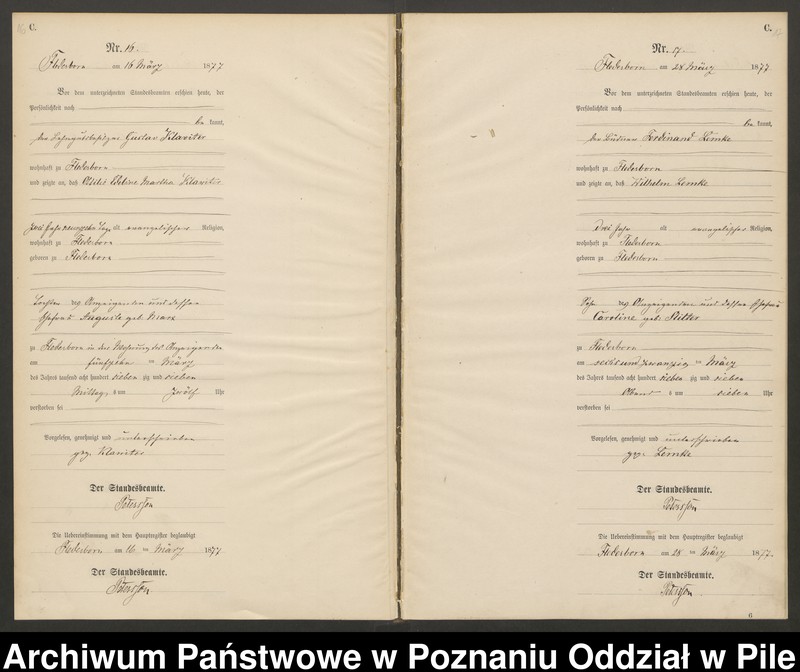 C.
Nr. 16.
Flederborn am 16 März 1877
Vor dem unterzeichneten Standesbeamten erschien heute, der
Persönlichkeit nach
be kannt,
der Gustav Klawiter
wohnhaft zu Flederborn
und zeigte an, daß Ottilie Martha Klawiter
alt evangelischer Religion,
wohnhaft zu Flederborn
geboren zu Flederborn
Tochter des Anzeigenden und dessen
Ehefrau Auguste geb. Marx
zu Flederborn in der Wohnung des Anzeigenden
am fünfzehn ten März
des Jahres tausend acht hundert sieben zig und sieben
Mittags um zwölf Uhr
verstorben sei
Vorgelesen, genehmigt und unterschrieben
gez. Klawiter
Der Standesbeamte.
Die Uebereinstimmung mit dem Hauptregister beglaubigt
Flederborn am 16 ten März 1877
Der Standesbeamte.
C.
Nr. 17.
Flederborn am 28 März 1877.
Vor dem unterzeichneten Standesbeamten erschien heute, der
Persönlichkeit nach
be kannt,
der Büdner Ferdinand Lemke
wohnhaft zu Flederborn
und zeigte an, daß Wilhelm Lemke
drei Jahr alt evangelischer Religion,
wohnhaft zu Flederborn
geboren zu Flederborn
Sohn des Anzeigenden und dessen Ehefrau
Caroline geb.
zu Flederborn
am sechsundzwanzig ten März
des Jahres tausend acht hundert sieben zig und sieben
Abends um sieben Uhr
verstorben sei
Vorgelesen, genehmigt und unterschrieben
gez. Lemke
Der Standesbeamte.
Die Uebereinstimmung mit dem Hauptregister beglaubigt
Flederborn am 28 ten März 1877.
Der Standesbeamte.
6
Archiwum Państwowe w Poznaniu Oddział w Pile